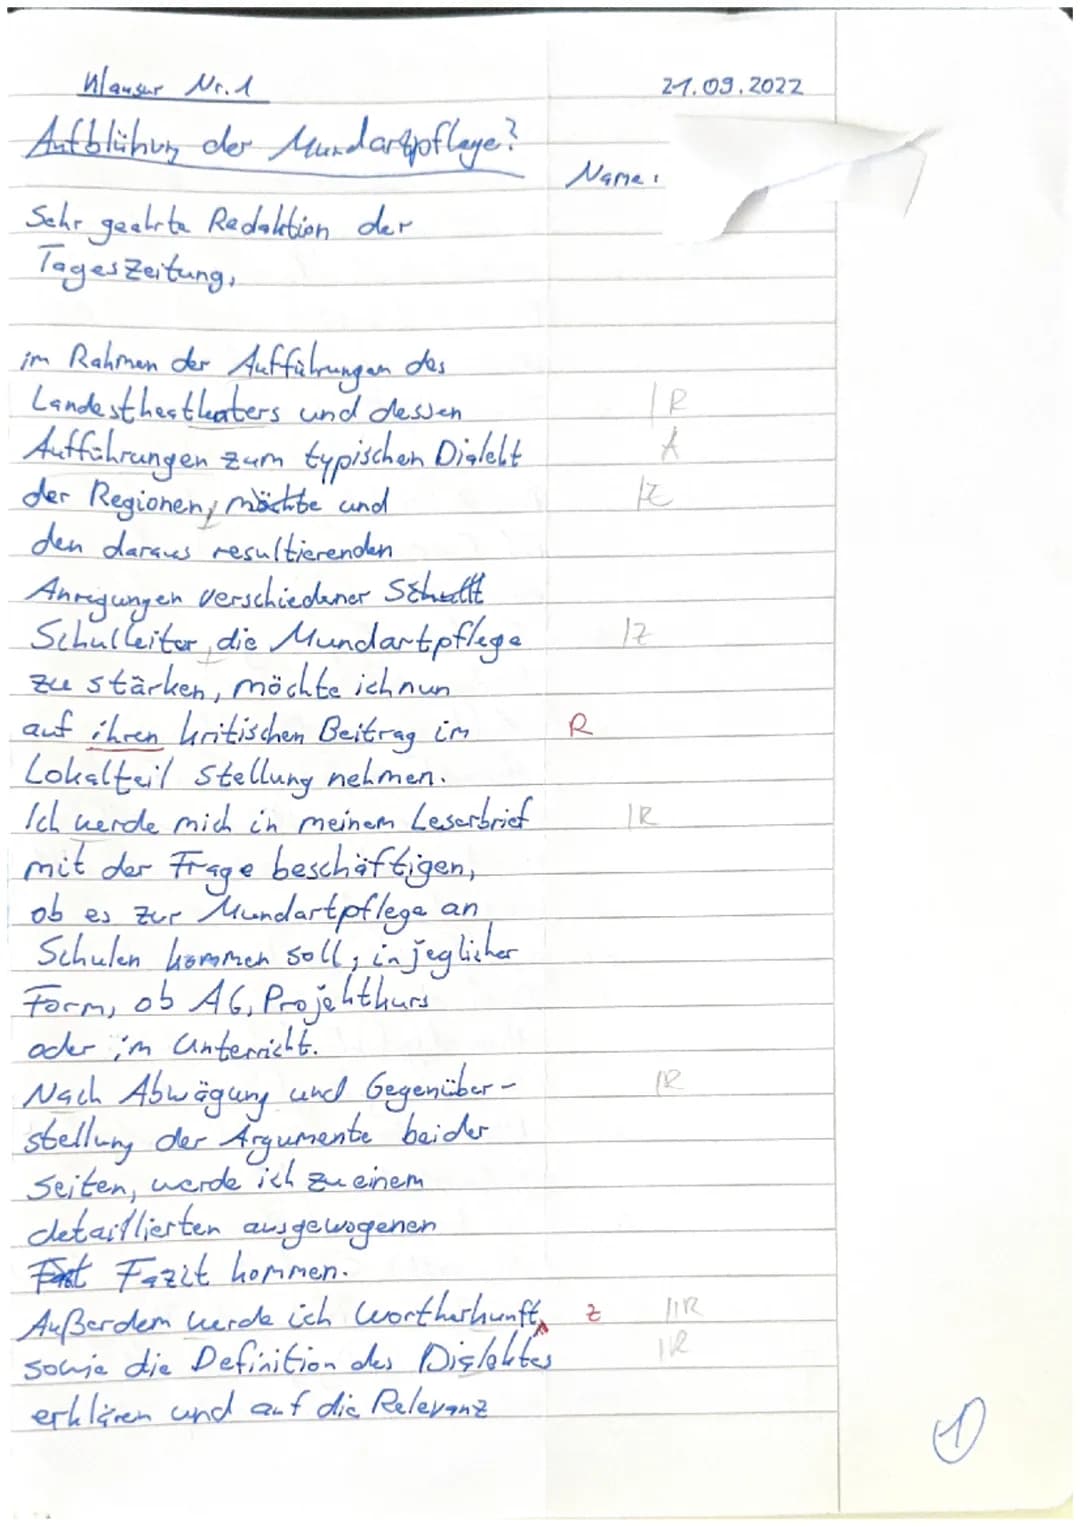 Klausur Nr. 1 21.09.2022
Aufblühung der Mundartpflege?
Name:
Sehr geehrte Redaktion der
Tageszeitung,
im Rahmen der Aufführungen des
Landestheatheaters und dessen R
Aufführungen zum typischen Dialekt A
der Regionen, möchte und Z
den daraus resultierenden
Anregungen verschiedener
Schulleiter, die Mundartpflege Z
zu stärken, möchte ich nun
auf ihren kritischen Beitrag im R
Lokalteil stellung nehmen.
Ich werde mich in meinem Leserbrief R
mit der Frage beschäftigen,
ob es zur Mundartpflege an
Schulen kommen soll, in jeglicher
Form, ob AG, Projektkurs
oder im Unterricht.
Nach Abwägung und Gegenüber- R
stellung der Argumente beider
Seiten, werde ich zu einem
detaillierten ausgewogenen
Fazit kommen.
Außerdem werde ich Wortherkunft, Z R
sowie die Definition des Dialektes R
erklären und auf die Relevanz
1